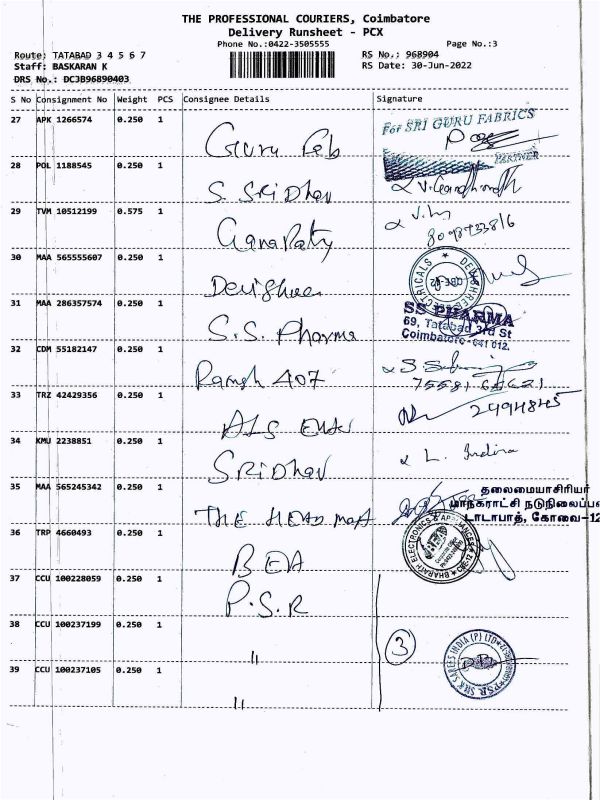 THE PROFESSIONAL COURIERS, Coimbatore
Delivery Runsheet - PCX
Phone No.:0422-3505555
Page No.:3
Route: TATABAD 3 4 5 6 7
RS No.: 968904
Staff: BASKARAN K
RS Date: 30-Jun-2022
DRS No.: DCJB96890403
S No Consignment No Weight PCS Consignee Details Signature
27 APK 1266574 0.250 1 Guru Feb
For SRI GURU FABRICS
PARTNER
28 POL 1188545 0.250 1 S. SRIDhav
29 TVM 10512199 0.575 1 GanaPaty
30 MAA 565555607 0.250 1
31 MAA 286357574 0.250 1 S.S. Pharma
SS PHARMA
69, Tatabad 3rd St
Coimbatore-641 012.
32 CDM 55182147 0.250 1 Ramesh 407
33 TRZ 42429356 0.250 1
24944845
34 KMU 2238851 0.250 1 SRIDhav
L. Indira
35 MAA 565245342 0.250 1 THE HEAD
தலைமையாசிரியர்
மாநகராட்சி நடுநிலைப்ப
டாடாபாத், கோவை-12
36 TRP 4660493 0.250 1 BEA
BHARATH ELECTRONICS & APPLIANCES
37 CCU 100228059 0.250 1 P.S.R
38 CCU 100237199 0.250 1 "
3
PSR SILK SAREES INDIA (P) LTD
39 CCU 100237105 0.250 1 "